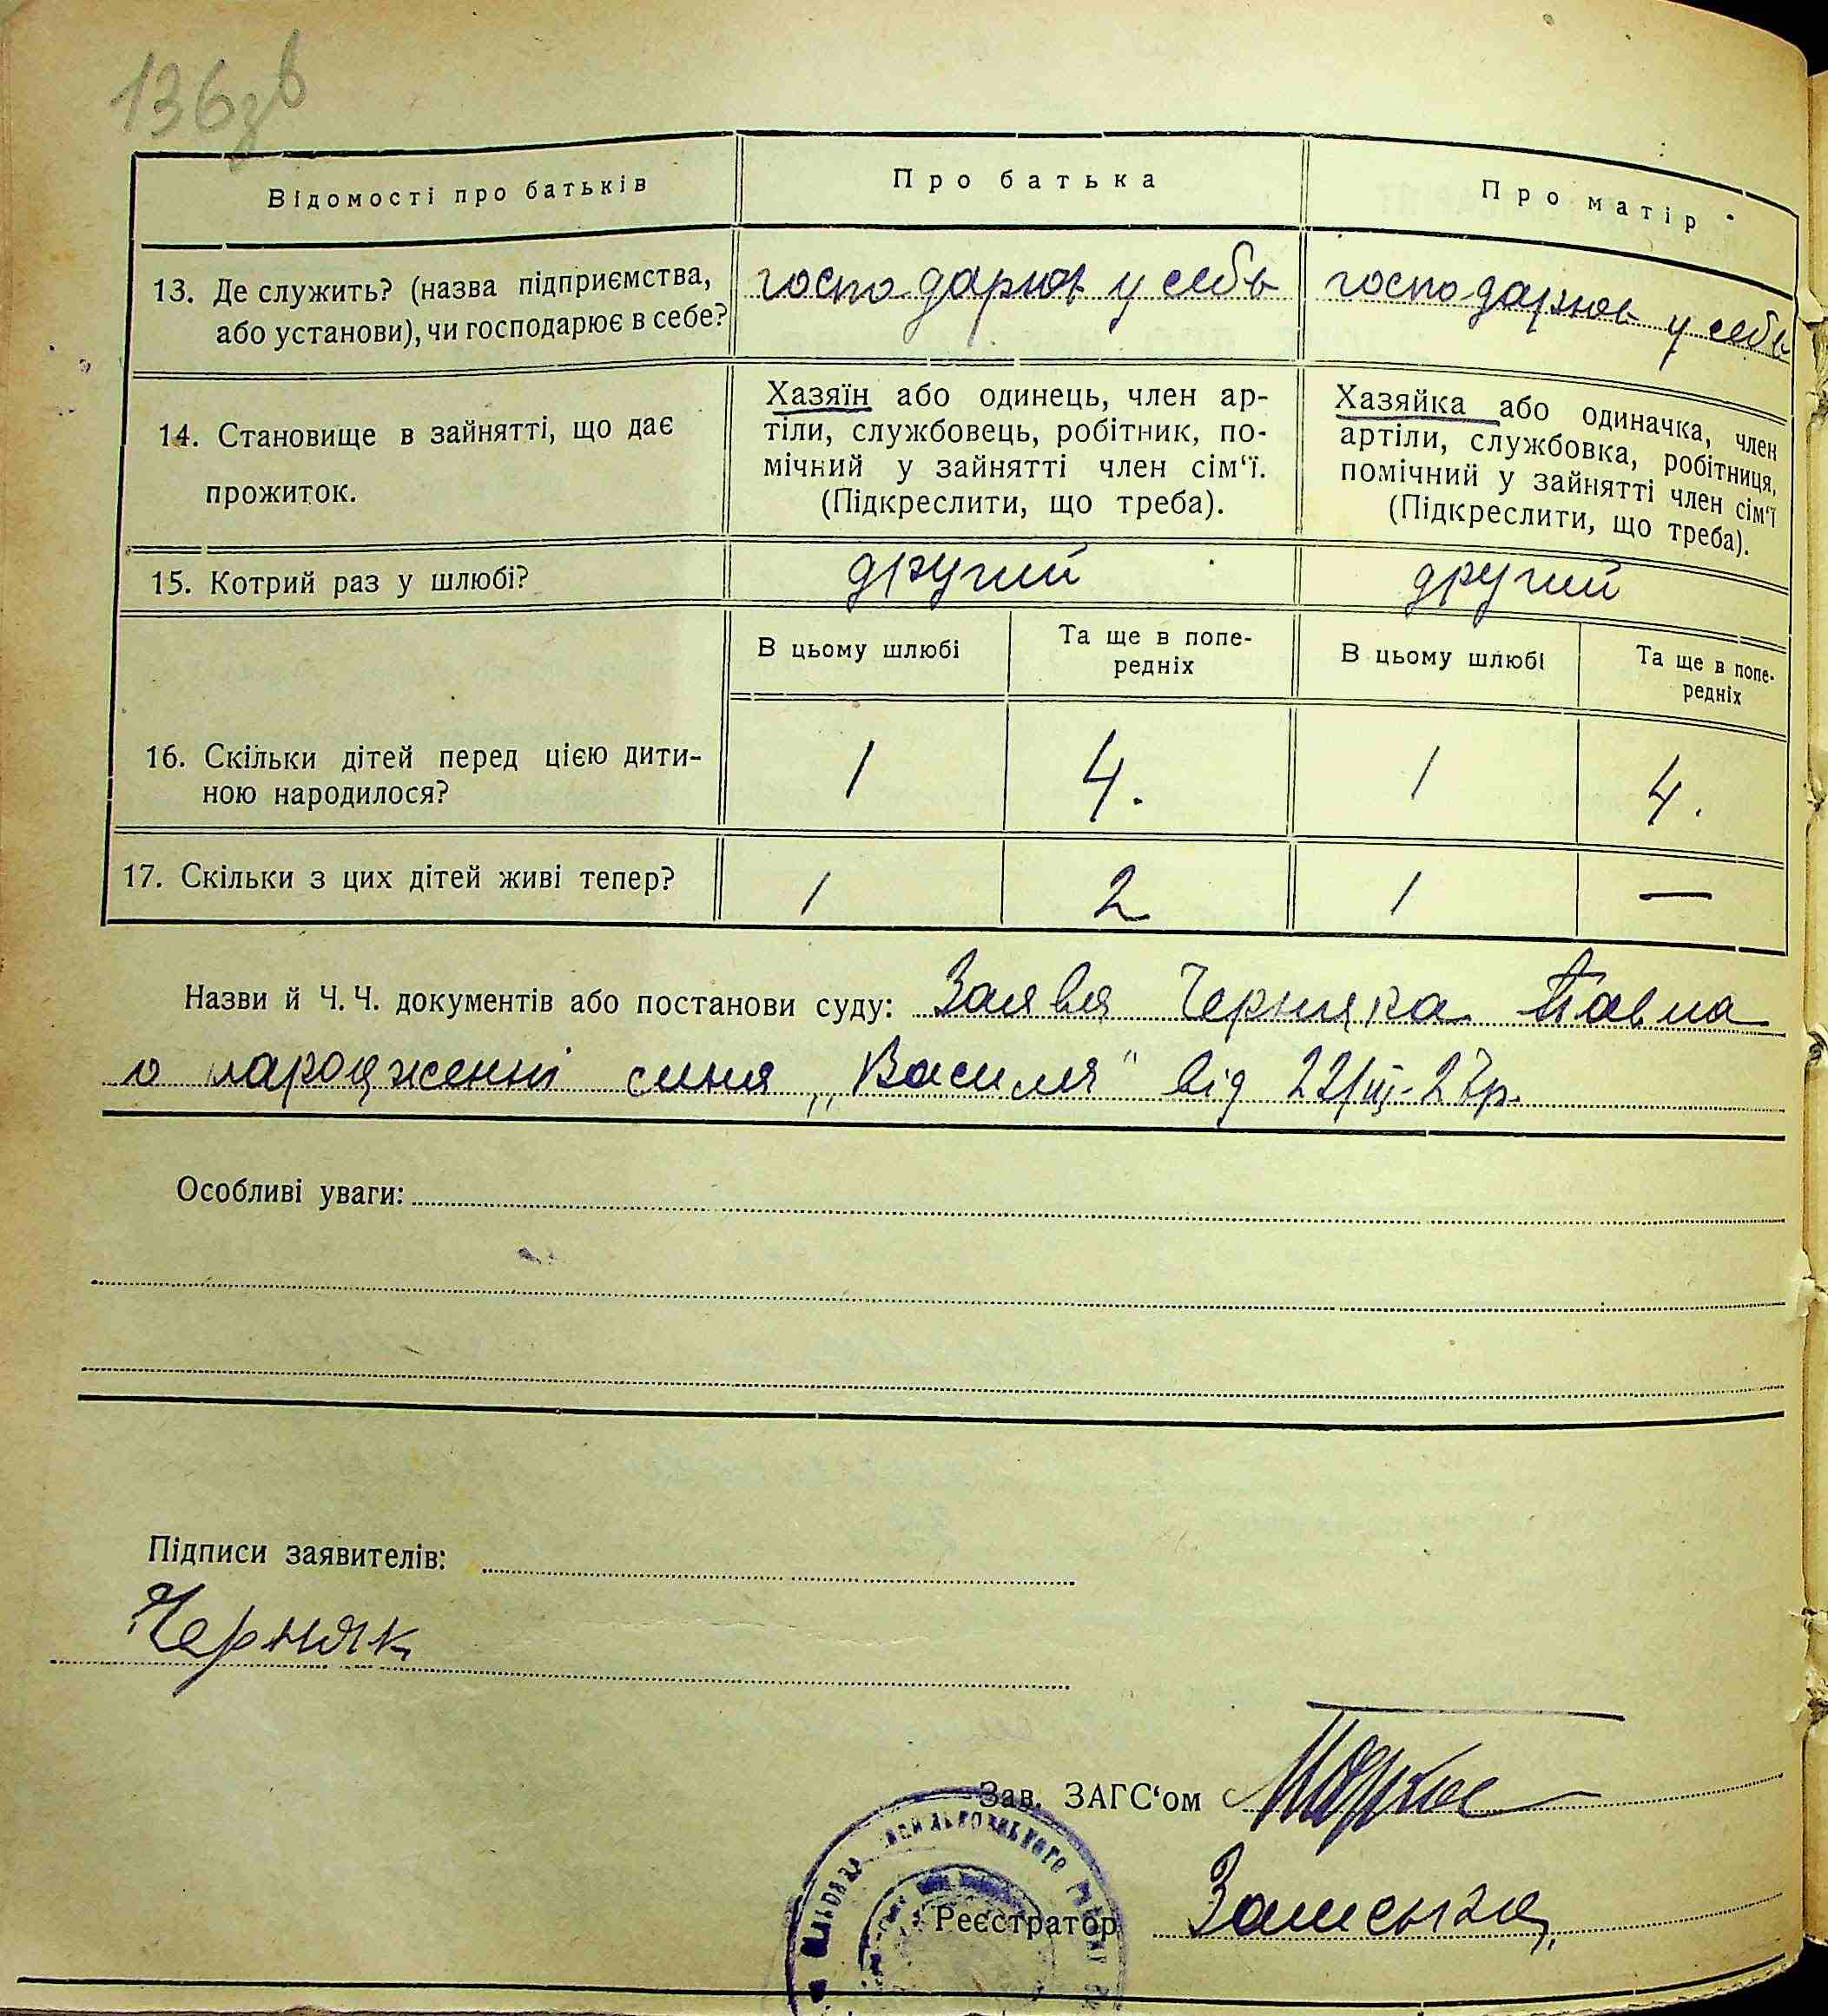 136зв
Відомості про батьків
Про батька
Про матір
13. Де служить? (назва підприємства,
або установи), чи господарює в себе?
господарює у себе
господарює у себе
14. Становище в зайнятті, що дає
прожиток.
Хазяїн або одинець, член ар-
тіли, службовець, робітник, по-
мічний у зайнятті член сім‘ї.
(Підкреслити, що треба).
Хазяйка або одиначка, член
артіли, службовка, робітниця,
помічний у зайнятті член сім‘ї
(Підкреслити, що треба).
15. Котрий раз у шлюбі?
другий
другий
В цьому шлюбі
Та ще в попе-
редніх
В цьому шлюбі
Та ще в попе-
редніх
16. Скільки дітей перед цією дити-
ною народилося?
1
4.
1
4.
17. Скільки з цих дітей живі тепер?
1
2
1
—
Назви й Ч. Ч. документів або постанови суду: Заява Черняка Павла
о народженні синя „Василя" від 22/III-27р.
Особливі уваги:
Підписи заявителів:
Черняк
Зав. ЗАГС‘ом
Реєстратор